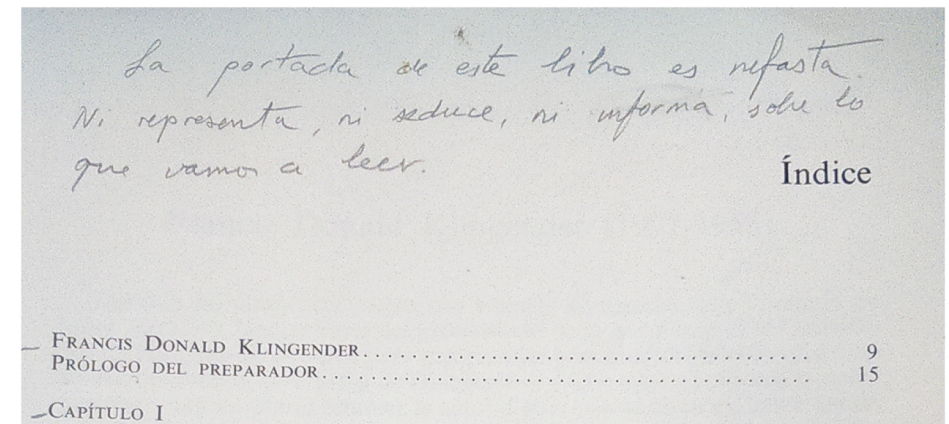 La portada de este libro es nefasta.
Ni representa, ni seduce, ni informa, sobre lo
que vamos a leer.
Índice
FRANCIS DONALD KLINGENDER 9
PRÓLOGO DEL PREPARADOR 15
CAPÍTULO I